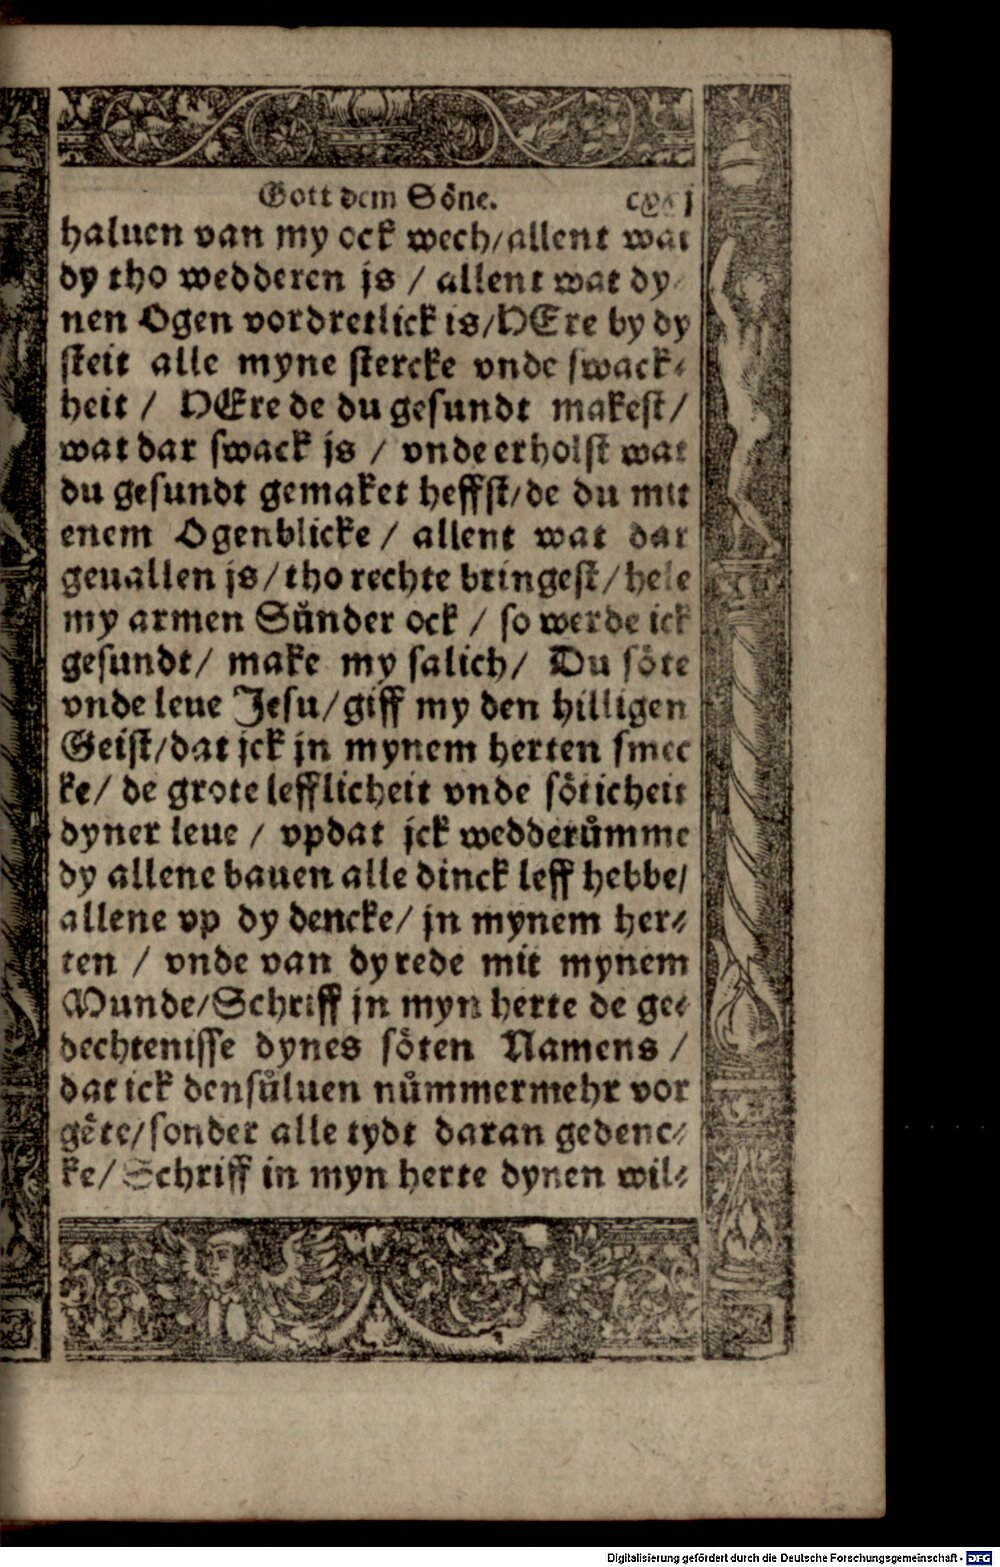 Gott dem Söne. cxxj
haluen van my ock wech/allent wat
dy tho wedderen js / allent wat dy
nen Ogen vordretlick is/HEre by dy
steit alle myne stercke vnde swack⸗
heit / HEre de du gesundt makest/
wat dar swack js / vnde erholst wat
du gesundt gemaket heffst/de du mit
enem Ogenblicke / allent wat dar
geuallen js/tho rechte bringest/hele
my armen Sůnder ock / so werde ick
gesundt/ make my salich/ Du söte
vnde leue Jesu/giff my den hilligen
Geist/dat jck jn mynem herten smec
ke/ de grote lefflicheit vnde söticheit
dyner leue / vpdat jck wedderůmme
dy allene bauen alle dinck leff hebbe/
allene vp dy dencke/ jn mynem her⸗
ten / vnde van dy rede mit mynem
Munde/Schriff jn myn herte de ge⸗
dechtenisse dynes söten Namens /
dat ick densůluen nůmmermehr vor
gete/sonder alle tydt daran gedenc⸗
ke/ Schriff in myn herte dynen wil⸗
Digitalisierung gefördert durch die Deutsche Forschungsgemeinschaft - DFG